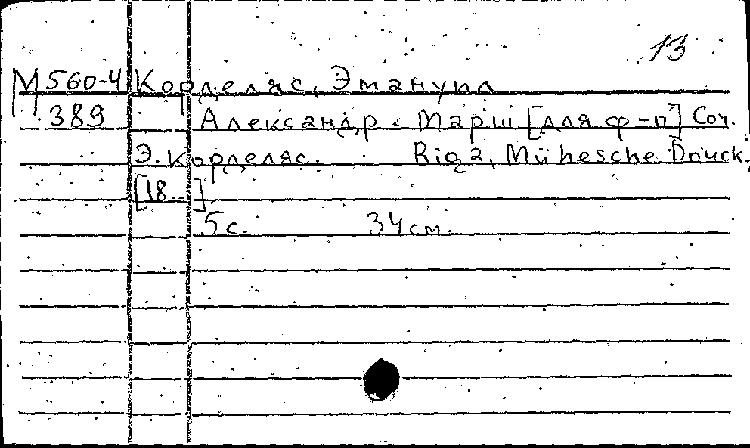 13
М 560-4 Корделяс, Эмануил
389 Александр-Марш [для ф-п] Соч.
Э. Корделяс. Riga, Mühesche Druck.
[18..]
5 с. 34 см.